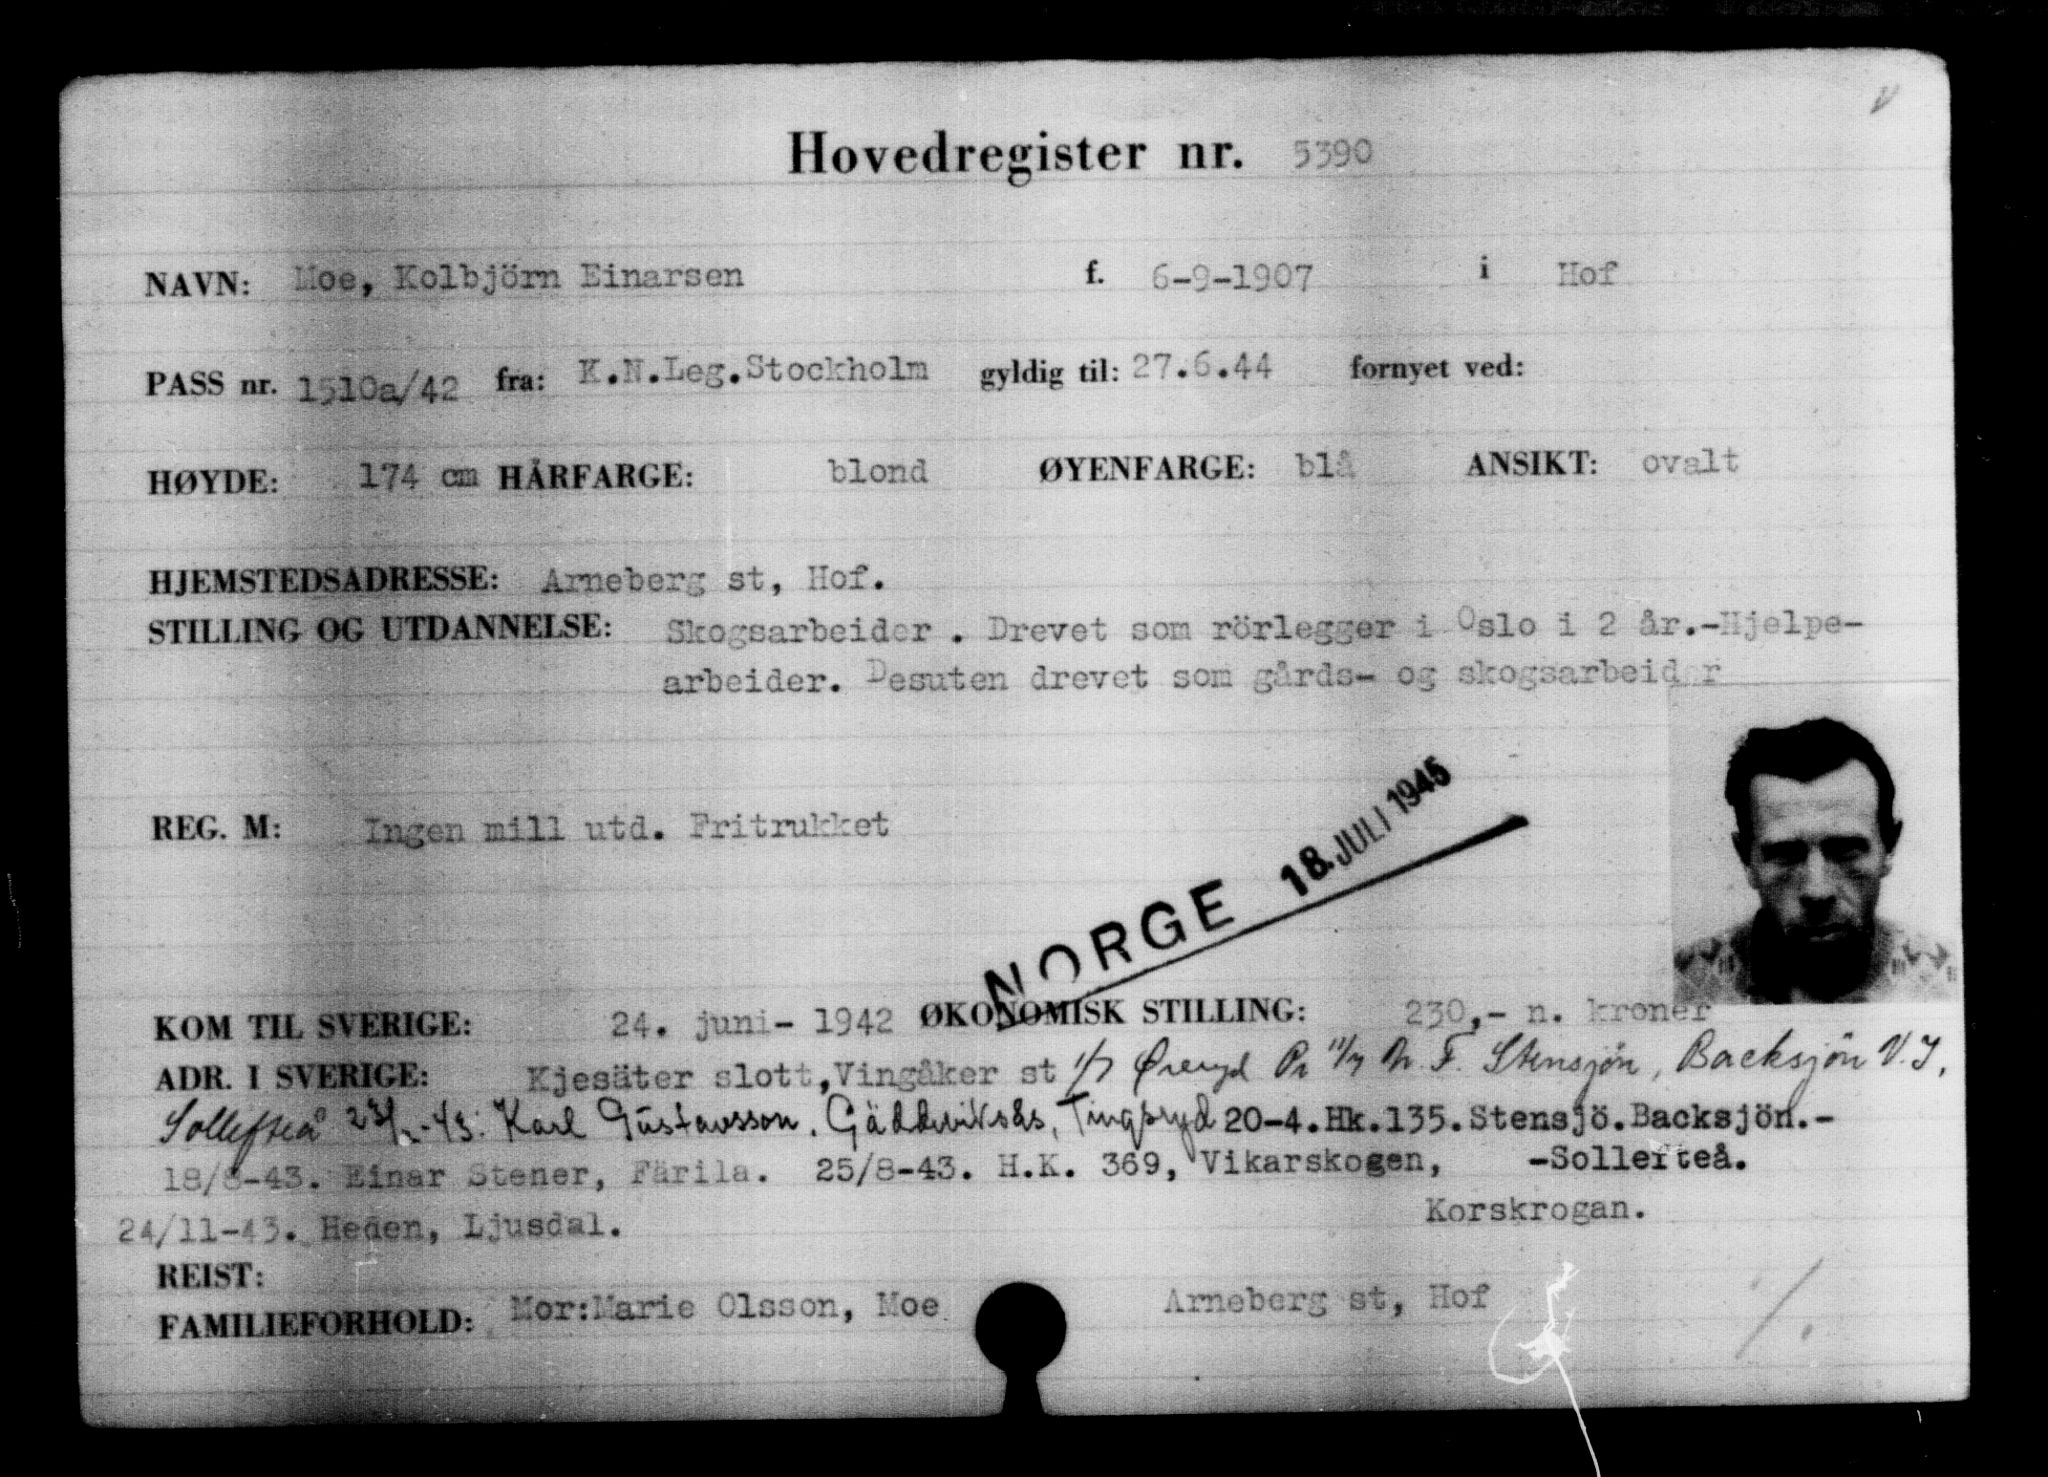 Hovedregister nr. 5390
NAVN: Moe, Kolbjörn Einarsen f. 6-9-1907 i Hof
PASS nr. 1510a/42 fra: K.N.Leg.Stockholm gyldig til: 27.6.44 fornyet ved:
HØYDE: 174 cm HÅRFARGE: blond ØYENFARGE: blå ANSIKT: ovalt
HJEMSTEDSADRESSE: Arneberg st, Hof.
STILLING OG UTDANNELSE: Skogsarbeider . Drevet som rörlegger i Oslo i 2 år.-Hjelpe-
arbeider. Desuten drevet som gårds- og skogsarbeider
REG. M: Ingen mill utd. Fritrukket
NORGE 18. JULI 1945
KOM TIL SVERIGE: 24. juni- 1942 ØKONOMISK STILLING: 230,- n. kroner
ADR. I SVERIGE: Kjesäter slott,Vingåker st 1/7 11/7 Stensjön, Backsjön V. J,
Sollefteå 23/2-43. Karl Gustavsson. Gäddeviksås, Tingsryd 20-4.Hk.135.Stensjö.Backsjön.-
18/8-43. Einar Stener, Färila. 25/8-43. H.K. 369, Vikarskogen, -Sollerteå.
Korskrogan.
24/11-43. Heden, Ljusdal.
REIST:
FAMILIEFORHOLD: Mor:Marie Olsson, Moe Arneberg st, Hof